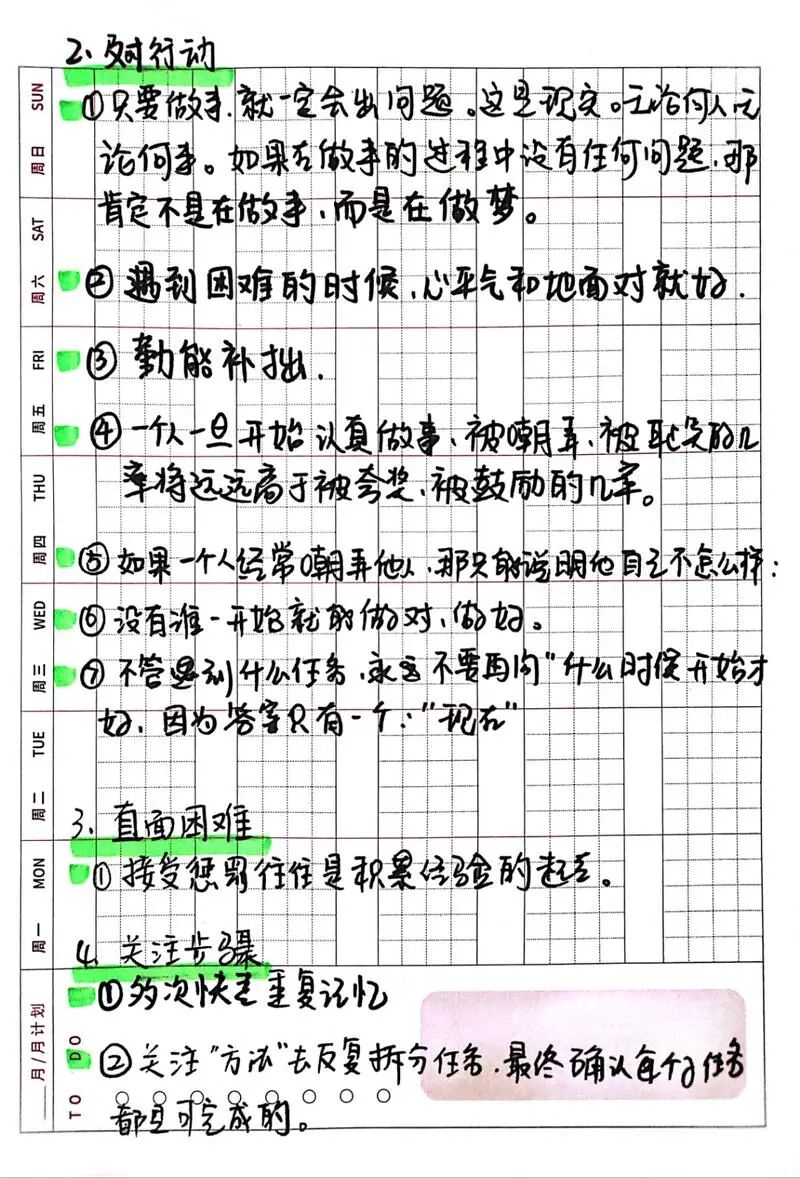 2、及时行动
①只要做事,就一定会出问题。这是现实。无论何人无
论何事。如果在做事的过程中没有任何问题,那
肯定不是在做事,而是在做梦。
②遇到困难的时候,心平气和地面对就好.
③勤能补拙.
④一个人一旦开始认真做事、被嘲弄、被耻笑的几
率将远远高于被夸奖、被鼓励的几率。
⑤如果一个人经常嘲弄他人,那只能说明他自己不怎么样;
⑥没有谁一开始就能做对、做好。
⑦不管遇到什么任务,永远不要再问"什么时候开始才
好,因为答案只有一个:"现在"
3、直面困难
①接受惩罚往往是积累经验的起点。
4、关注步骤
①多次快速重复记忆
②关注"方法"去反复拆分任务,最终确认每个子任务
都是可完成的。
周日 SUN
周六 SAT
周五 FRI
周四 THU
周三 WED
周二 TUE
周一 MON
月/月计划 TO DO